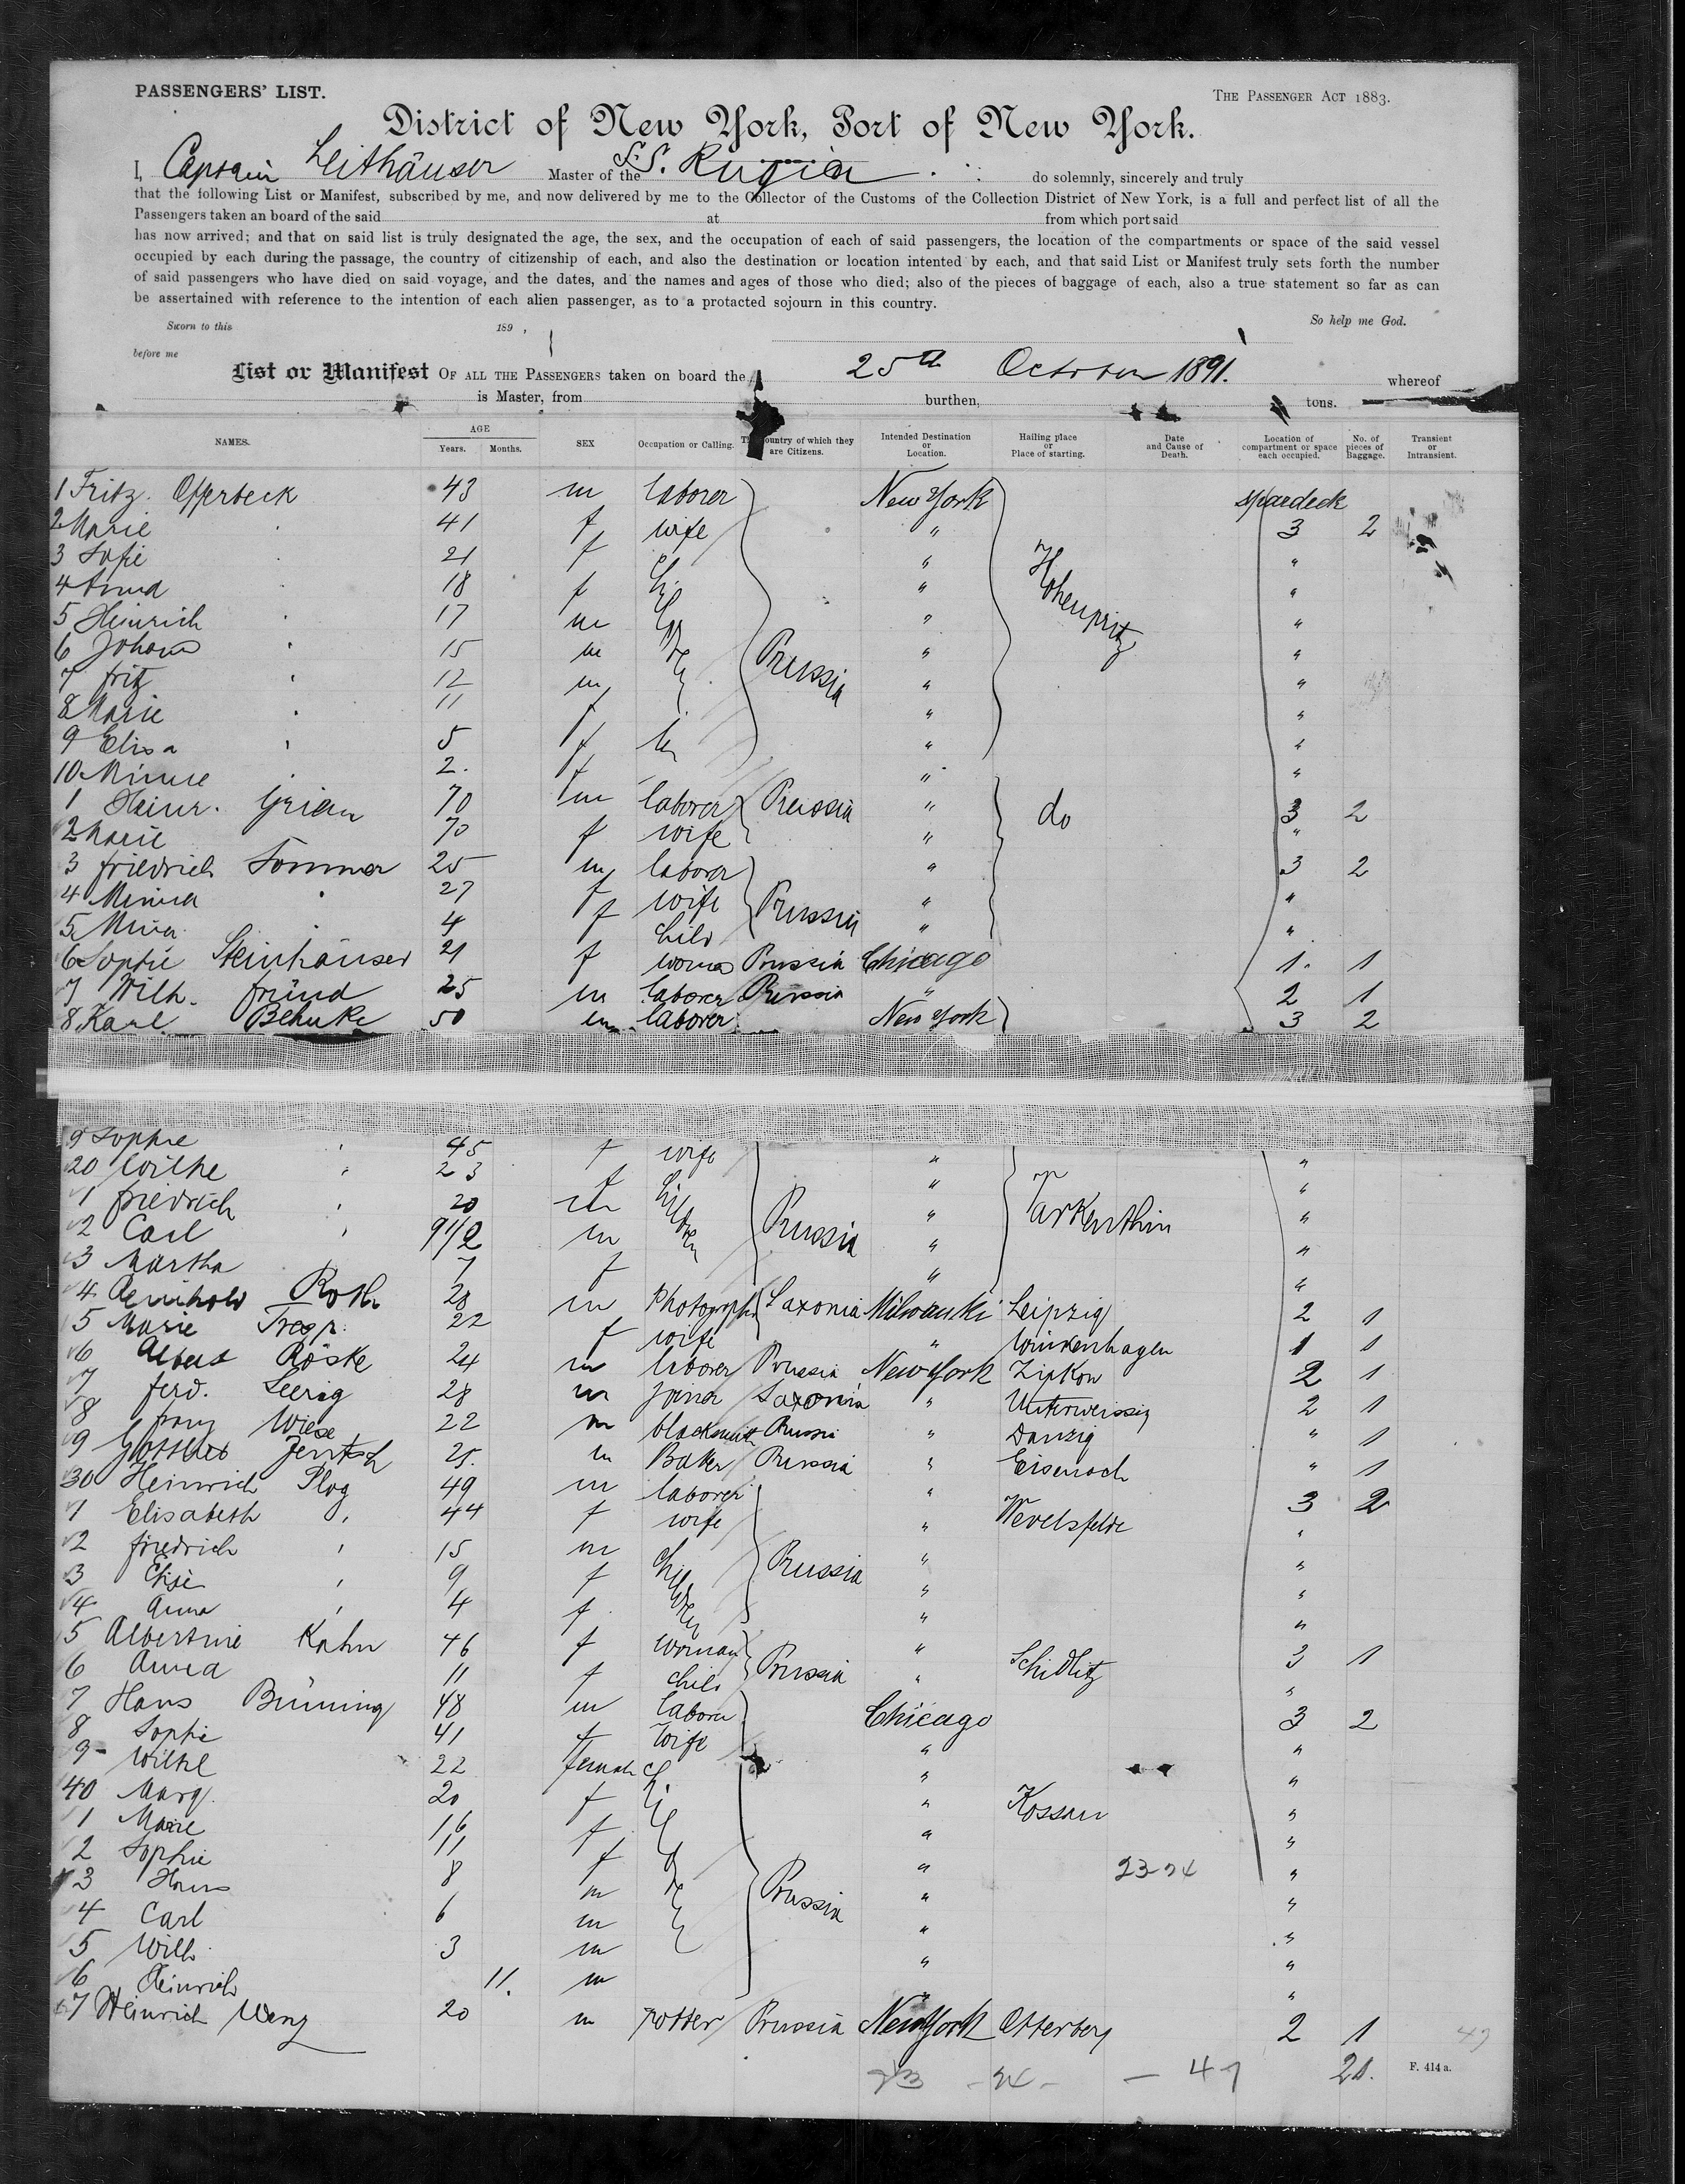 PASSENGERS' LIST.
THE PASSENGER ACT 1883.
District of New York, Port of New York.
I, Captain Leithäuser Master of the S.S. Rugia do solemnly, sincerely and truly
that the following List or Manifest, subscribed by me, and now delivered by me to the Collector of the Customs of the Collection District of New York, is a full and perfect list of all the
Passengers taken an board of the said at from which port said
has now arrived; and that on said list is truly designated the age, the sex, and the occupation of each of said passengers, the location of the compartments or space of the said vessel
occupied by each during the passage, the country of citizenship of each, and also the destination or location intented by each, and that said List or Manifest truly sets forth the number
of said passengers who have died on said voyage, and the dates, and the names and ages of those who died; also of the pieces of baggage of each, also a true statement so far as can
be assertained with reference to the intention of each alien passenger, as to a protacted sojourn in this country.
Sworn to this 189 , So help me God.
before me
25th October 1891.
List or Manifest OF ALL THE PASSENGERS taken on board the whereof
is Master, from burthen, tons.
NAMES. AGE Years. Months. SEX Occupation or Calling. The country of which they are Citizens. Intended Destination or Location. Hailing place or Place of starting. Date and Cause of Death. Location of compartment or space each occupied. No. of pieces of Baggage. Transient or Intransient.
1 Fritz Offerbeck 43 m laborer New York spardeck
2 Marie 41 f wife " 3 2
3 Sofie 21 f children " "
4 Anna 18 f " Hohenpritz "
5 Heinrich 17 m " "
6 Johann 15 m Prussia " "
7 Fritz 12 m " "
8 Marie 11 f " "
9 Elisa 5 f " "
10 Minne 2. f " "
1 Heinr. 70 m laborer Prussia " do 3 2
2 Marie 70 f wife " "
3 Friedrich Sommer 25 m laborer " 3 2
4 Minna 27 f wife Prussia " "
5 Mina 4 f child " "
6 Sophie Steinhäuser 21 f woman Prussia Chicago 1. 1
7 Wilh. Fründ 25 m laborer Prussia " 2 1
8 Karl Behnke 50 m laborer New York 3 2
9 Sophie " 45 f wife " "
20 Wilhe " 23 f children " Tarkenthin "
1 Friedrich " 20 m Prussia " "
2 Carl " 9 1/2 m " "
3 Martha 7 f " "
4 Reinhold Roth 28 m Photograph Saxonia Milwauki Leipzig 2 1
5 Marie 22 f wife " Winkenhagen 1 1
6 Albert Röske 24 m laborer Prussia New York Zipkow 2 1
7 Ferd. Seerig 28 m Saxonia " Unterweissig 2 1
8 Franz Wiese 22 m blacksmith Prussia " Danzig " 1
9 Gottlieb Jentsch 25. m Baker Prussia " Eisenach " 1
30 Heinrich Plog 49 m laborer " 3 2
1 Elisabeth " 44 f wife " Wevelsfelde "
2 Friedrich " 15 m children Prussia " "
3 Elise " 9 f " "
4 Anna " 4 f " "
5 Albertine Kahn 46 f woman Prussia " Schidlitz 3 1
6 Anna 11 f child " "
7 Hans Brüning 48 m laborer Chicago 3 2
8 Sophie 41 f wife " "
9 Wilhe 22 female children " "
40 Marg. 20 f " Kossau "
1 Marie 16 f " "
2 Sophie 11 f " 23-24 "
3 Hans 8 m Prussia " "
4 Carl 6 m " "
5 Wilh. 3 m " "
6 Heinrich 11. m " "
7 Heinrich Wenz 20 m potter Prussia New York Otterberg 2 1
23 - 24 - - 47 21. F. 414 a.